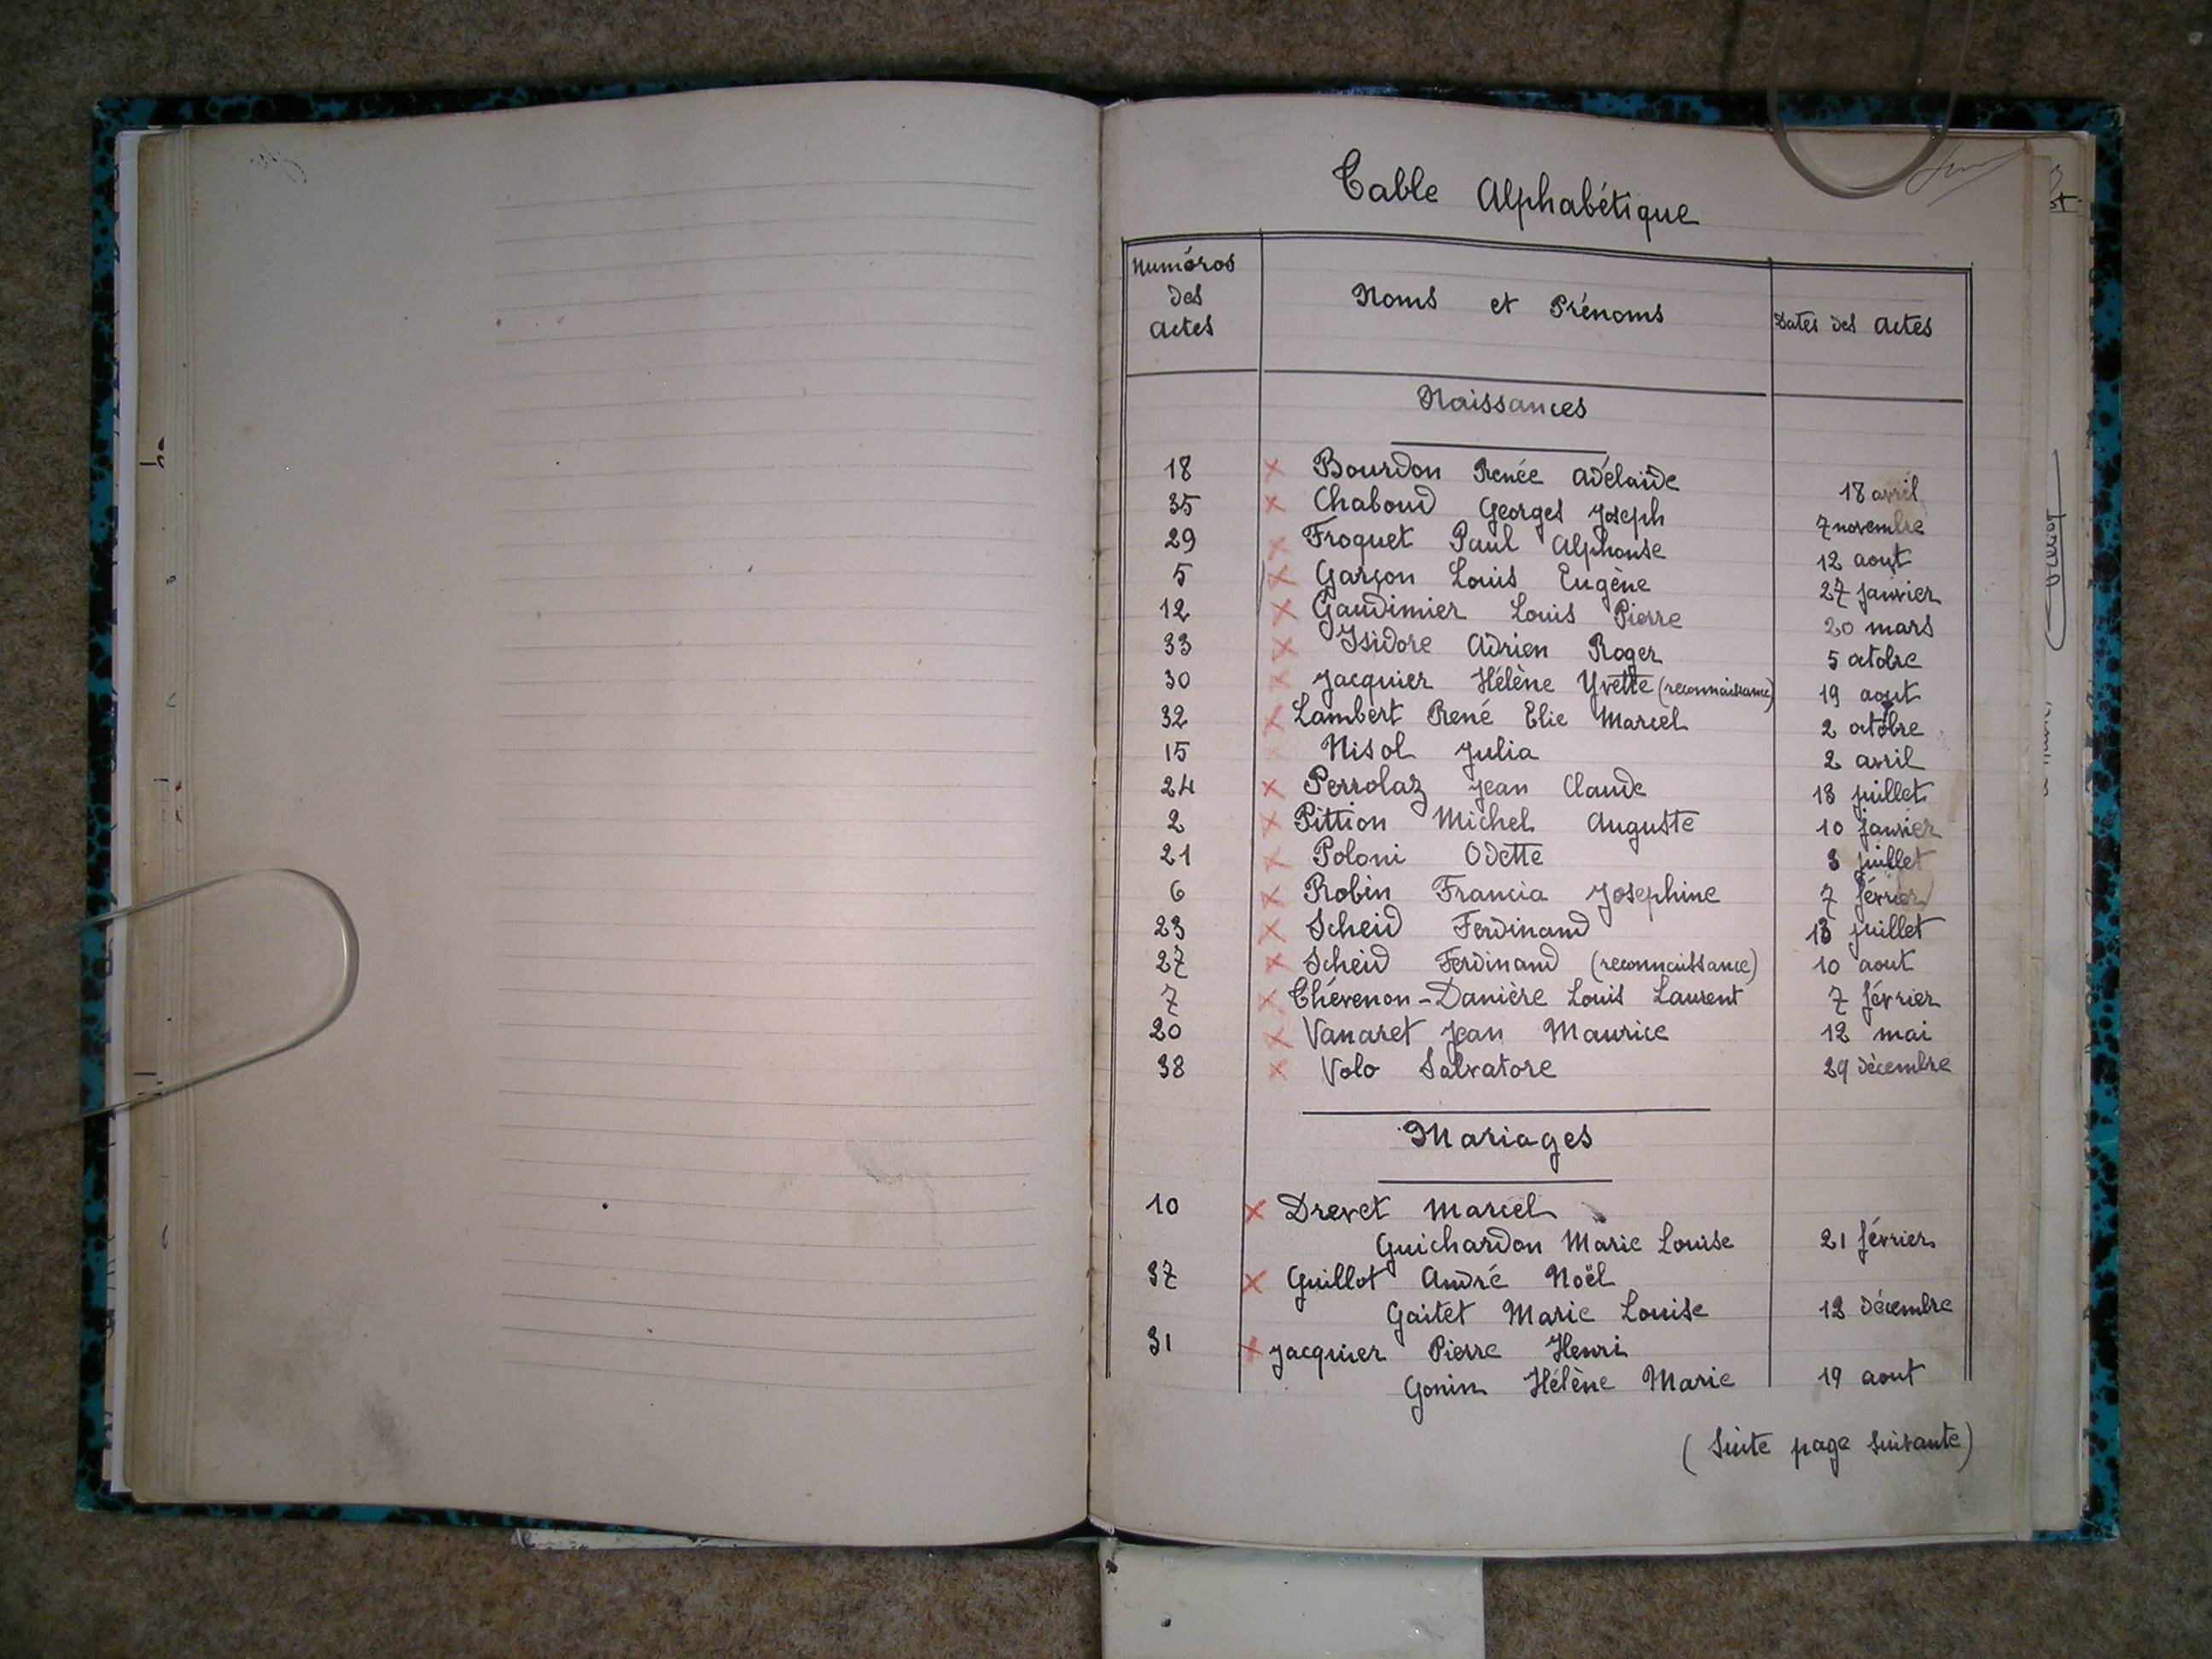 Table Alphabétique
Numéros des actes Noms et Prénoms Dates des actes
Naissances
18 Bourdon Renée Adélaïde 18 avril
35 Chaboud Georges Joseph 7 novembre
29 Froquet Paul Alphonse 12 aout
5 Garçon Louis Eugène 27 janvier
12 Gaudimier Louis Pierre 20 mars
33 Isidore Adrien Roger 5 octobre
30 Jacquier Hélène Yvette (reconnaissance) 19 aout
32 Lambert René Elie Marcel 2 octobre
15 Nisol Julia 2 avril
24 Perrolaz Jean Claude 13 juillet
2 Pittion Michel Auguste 10 janvier
21 Poloni Odette 3 juillet
6 Robin Francia Josephine 7 février
23 Scheid Ferdinand 13 juillet
27 Scheid Ferdinand (reconnaissance) 10 aout
7 Thévenon-Danière Louis Laurent 7 février
20 Vanaret Jean Maurice 12 mai
38 Volo Salvatore 29 décembre
Mariages
10 Drevet Marcel
Guichardon Marie Louise 21 février
37 Guillot André Noël
Gaitet Marie Louise 12 décembre
31 Jacquier Pierre Henri
Gonin Hélène Marie 19 aout
(Suite page suivante)